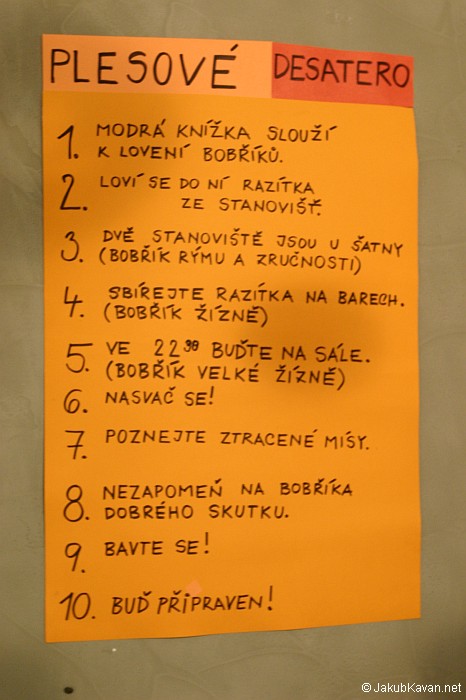 PLESOVÉ DESATERO
1. MODRÁ KNÍŽKA SLOUŽÍ
K LOVENÍ BOBŘÍKŮ.
2. LOVÍ SE DO NÍ RAZÍTKA
ZE STANOVIŠŤ.
3. DVĚ STANOVIŠTĚ JSOU U ŠATNY
(BOBŘÍK RÝMU A ZRUČNOSTI)
4. SBÍREJTE RAZÍTKA NA BARECH.
(BOBŘÍK ŽÍZNĚ)
5. VE 22 30 BUĎTE NA SÁLE.
(BOBŘÍK VELKÉ ŽÍZNĚ)
6. NASVAČ SE!
7. POZNEJTE ZTRACENÉ MÍSY.
8. NEZAPOMEŇ NA BOBŘÍKA
DOBRÉHO SKUTKU.
9. BAVTE SE!
10. BUĎ PŘIPRAVEN!
©JakubKavan.net